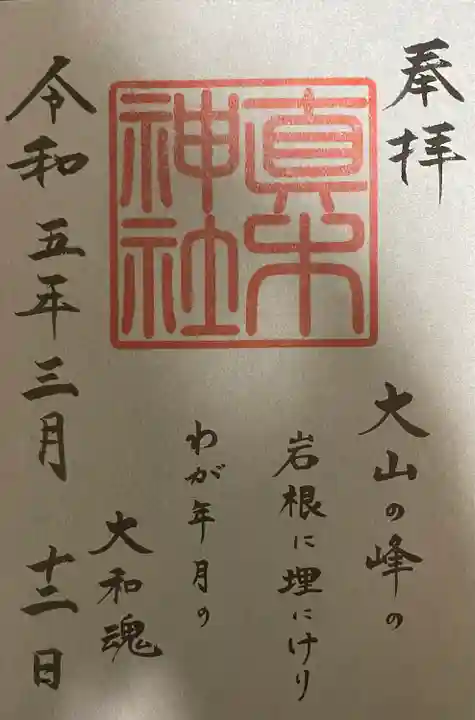 奉拝
真木
神社
大山の峰の
岩根に埋にけり
わが年月の
大和魂
令和五年三月十二日